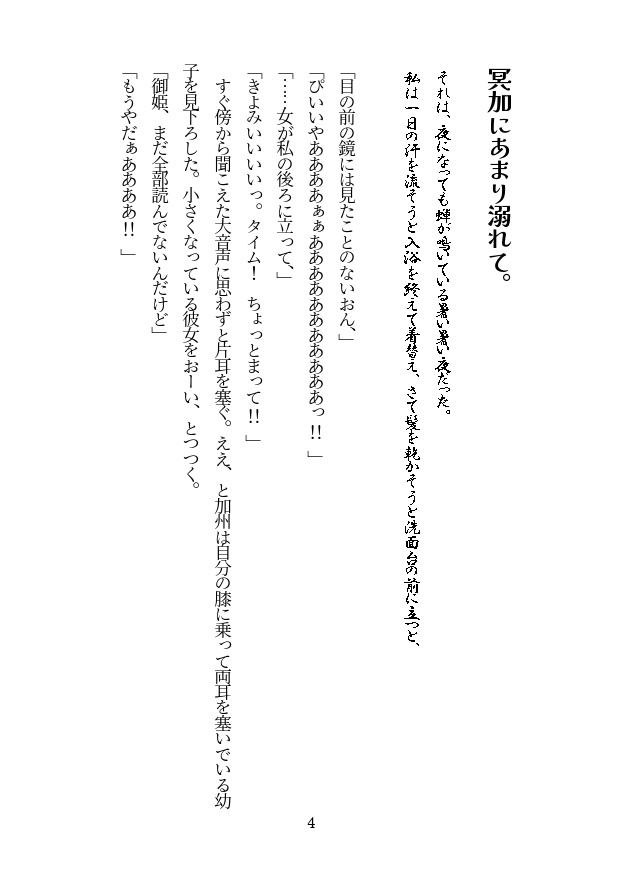 冥加にあまり溺れて。
それは、夜になっても蝉が鳴いている暑い暑い夜だった。
私は一日の汗を流そうと入浴を終えて着替え、さて髪を乾かそうと洗面台の前に立つと、
「目の前の鏡には見たことのないおん、」
「ぴいいやああああぁぁああああああああああっ!!」
「……女が私の後ろに立って、」
「きよみいいいいっ。タイム! ちょっとまって!!」
すぐ傍から聞こえた大音声に思わずと片耳を塞ぐ。ええ、と加州は自分の膝に乗って両耳を塞いでいる幼
子を見下ろした。小さくなっている彼女をおーい、とつつく。
「御姫、まだ全部読んでないんだけど」
「もうやだぁああああ!!」
4